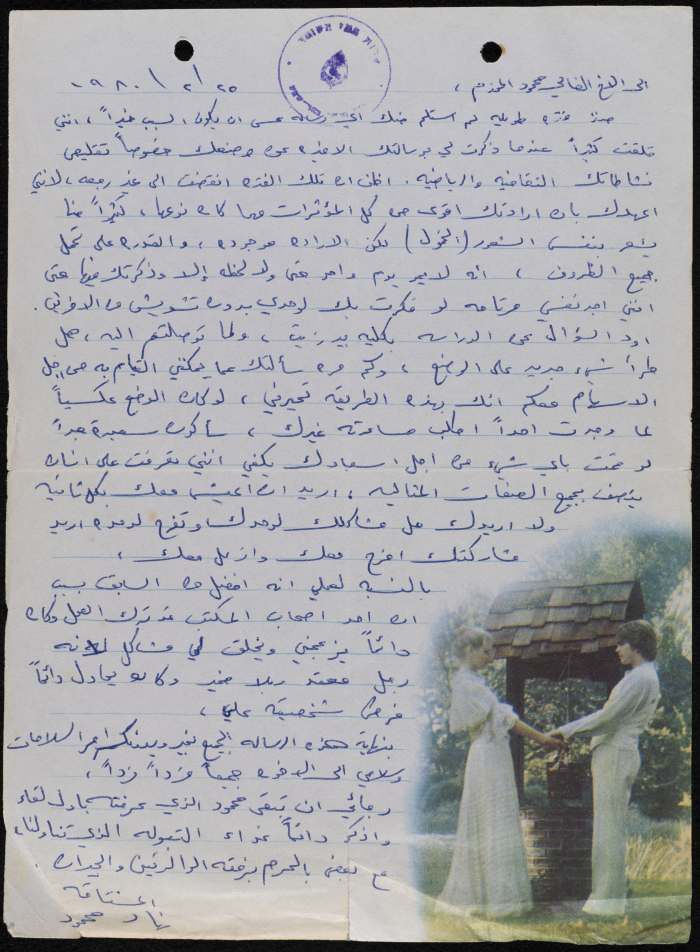 ١٩٨٠/٢/٢٥
الى الاخ الغالي محمود المحترم ،
منذ فتره طويله لم استلم منك اي رساله عسى ان يكون السبب خيراً ، انني
قلقت كثيراً عندما ذكرت لي برسالتك الاخيره عن وضعك خصوصاً تقليص
نشاطاتك الثقافيه والرياضيه . اظن ان تلك الفتره انقضت الى غير رجعه ، لانني
اعهدك بان ارادتك اقوى من كل المؤثرات مهما كان نوعها ، كثيراً منا
يشعر بنفس الشعور (الخمول) لكن الاراده موجوده ، والقدره على تحمل
جميع الظروف ، انه لا يمر يوم واحد حتى ولا لحظه إلا وذكرتك فيها حتى
انني اجد نفسي مرتاحه لو فكرت بك لوحدي بدون تشويش من الاخرين .
اود السؤال عن الدراسه بكليه بيرزيت ، ولما توصلتم اليه ، هل
طرأ شيء جديد على الوضع ، وكم مره سألتك عما يمكنني القيام به من اجل
الاسهام معكم انك بهذه الطريقه تحيرني ، لو كان الوضع عكسياً
لما وجدت احداً اطلب مساعدته غيرك ، سأكون سعيدة جداً
لو قمت باي شيء من اجل اسعادك يكفي انني تعرفت على انسان
يتصف بجميع الصفات المثاليه ، اريد ان اعيش معك بكل ثانيه
ولا اريدك حل مشاكلك لوحدك وتفرح لوحدك اريد
مشاركتك افرح معك وازعل معك ،
بالنسبه لعملي انه افضل من السابق بسبب
ان احد اصحاب المكتب قد ترك العمل وكان
دائماً يزعجني ويخلق لي مشاكل لانه
رجل معقد بلا ضمير وكان يحاول دائماً
فرض شخصيته علي ،
بنهاية هذه الرساله الجميع بخير ويبعثون احر السلامات
وسلامي الى الاخوه جميعاً فرداً فرداً ،
رجائي ان تبقى محمود الذي عرفته باول لقاء
واذكر دائماً غداء التبوله الذي تناولناه
مع بعض بالحرم برفقه الوالدين والجيران .
المشتاقه
نهاد محمود